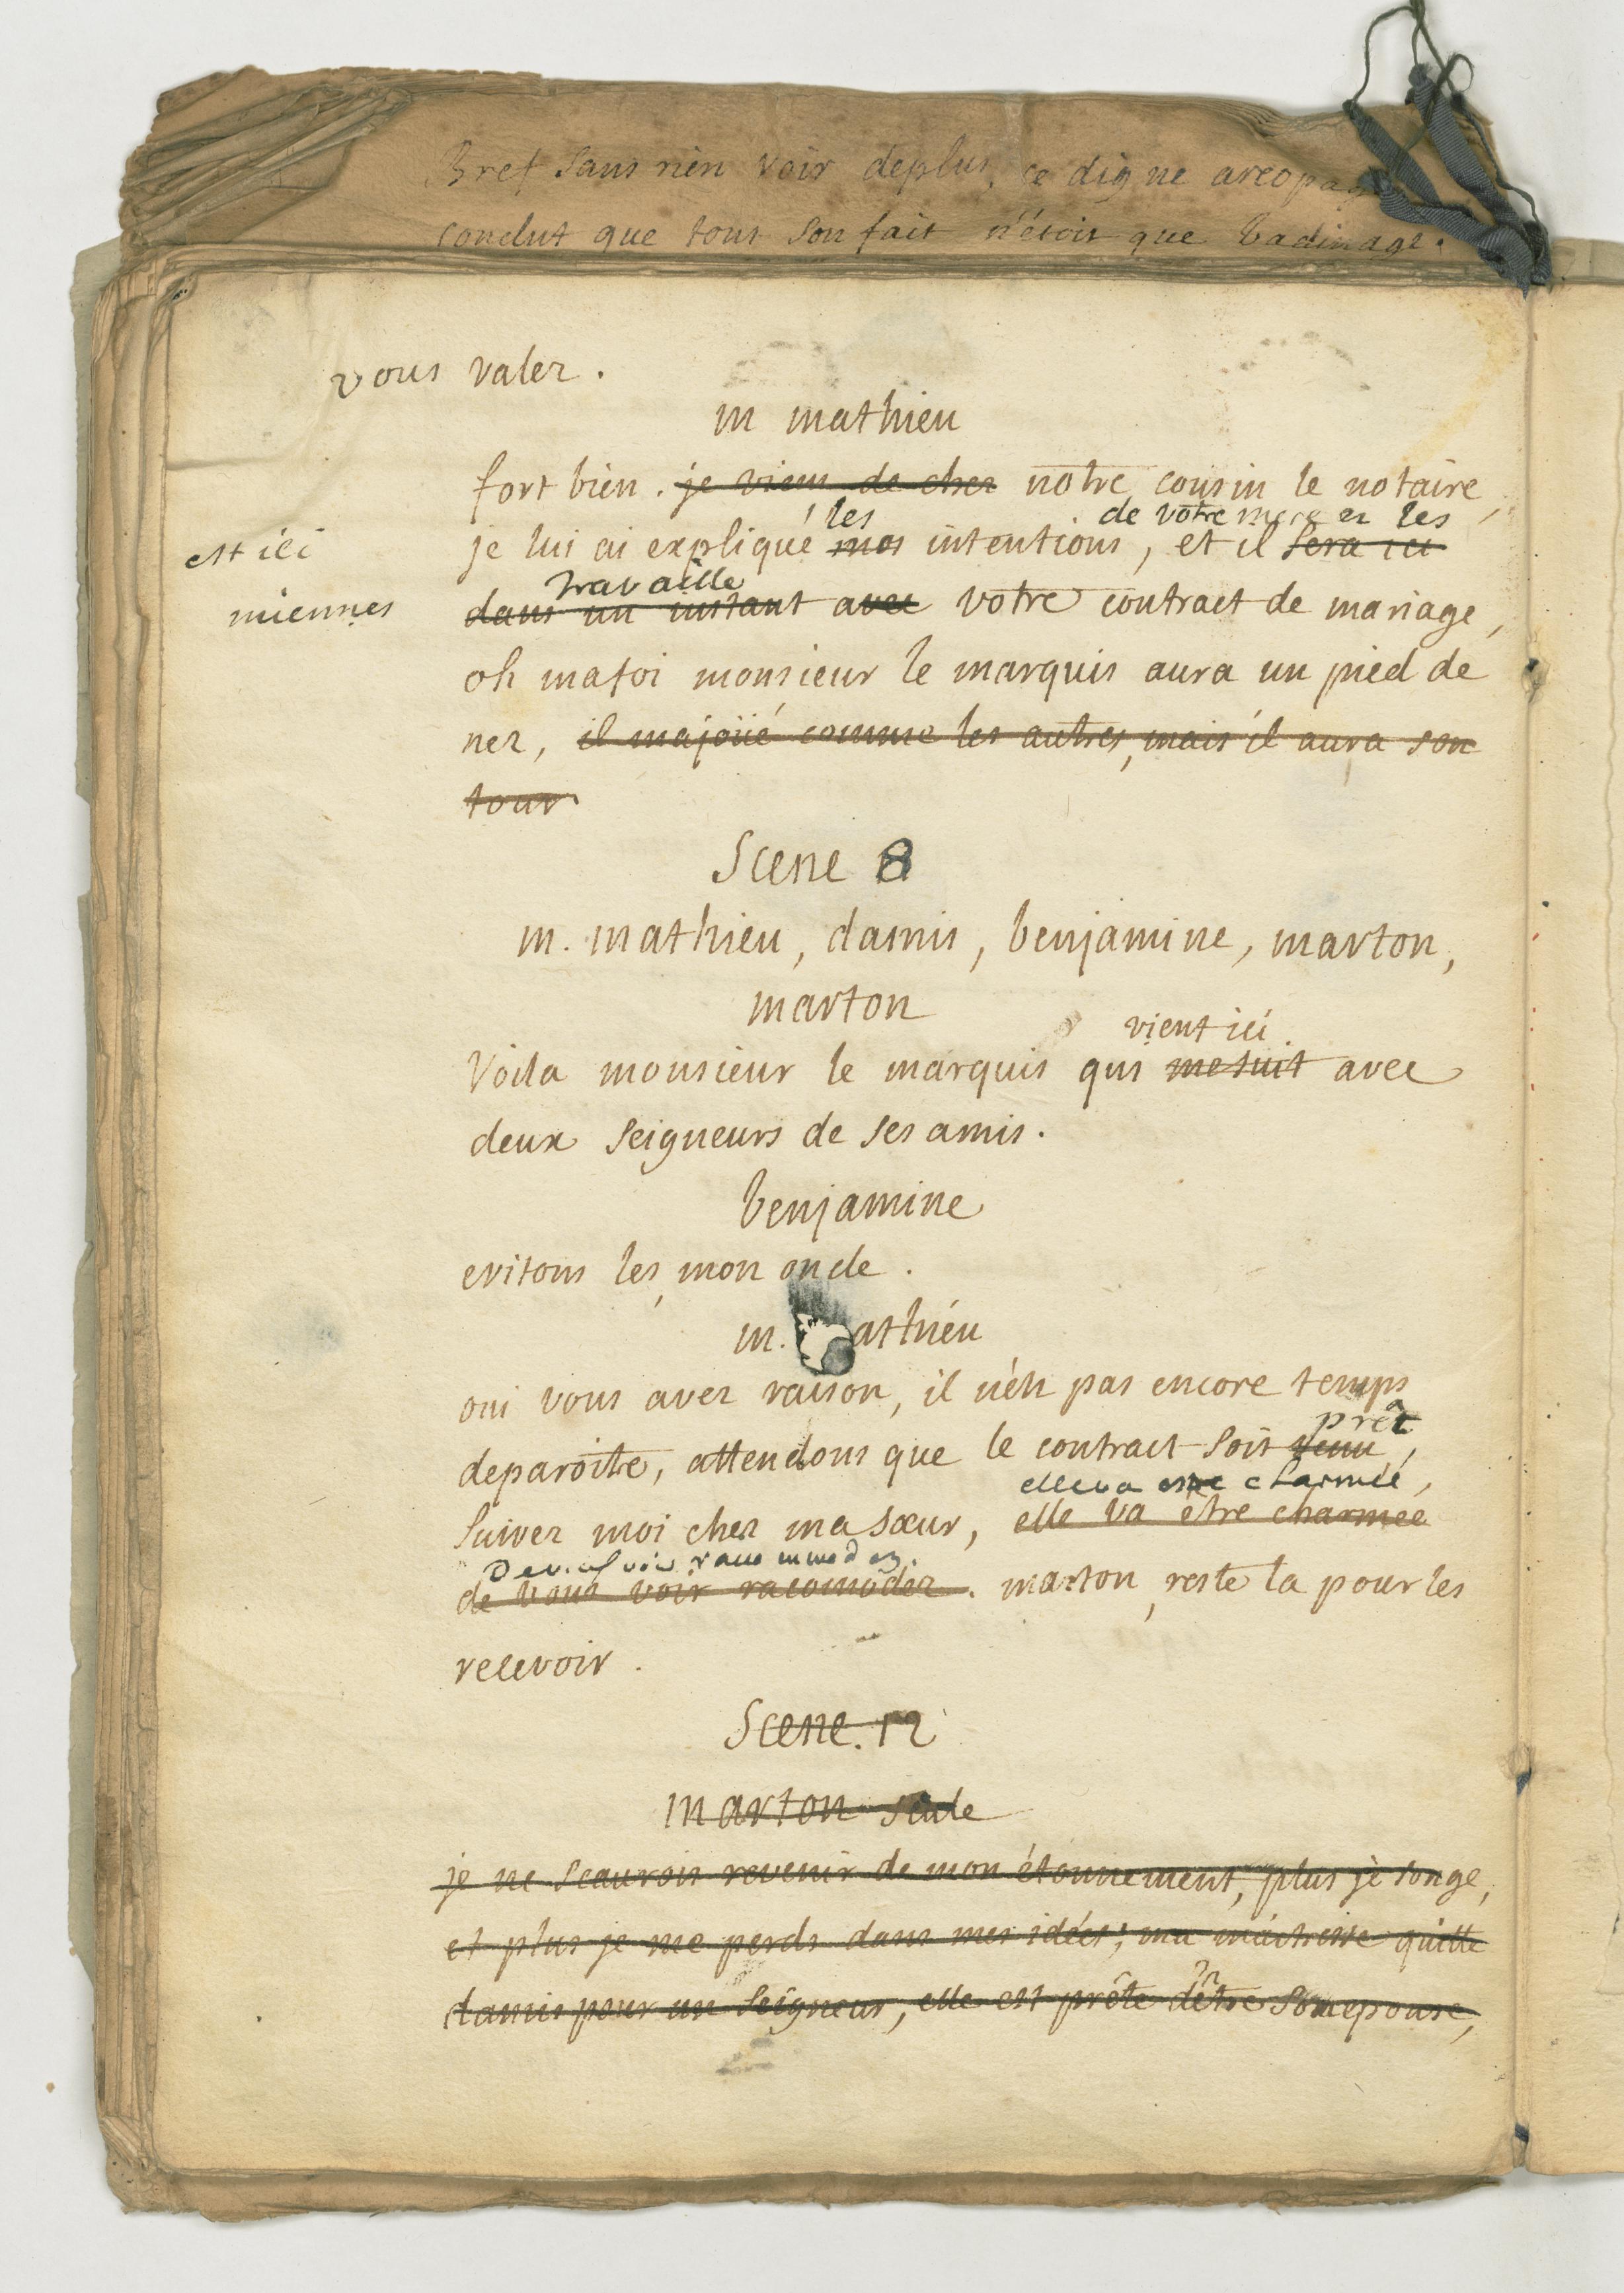 Bref sans rien voir deplus, ce digne areopage
conclut que tout son fait n'étoit que badinage.
vous valez.
m mathieu
fort bien. je viens de chez notre cousin le notaire,
les de votre mere et les
est ici je lui ai expliqué mes intentions, et il sera ici
travaille
miennes dans un instant avec votre contract de mariage,
oh mafoi monsieur le marquis aura un pied de
nez, il majoüé comme les autres, mais il aura son
tour.
Scene 8
m. mathieu, damis, benjamine, marton,
marton
vient ici
Voila monsieur le marquis qui me suit avec
deux seigneurs de ses amis.
benjamine
evitons les, mon oncle.
m. athieu
oui vous avez raison, il n'est pas encore temps
prêt
deparoître, attendons que le contract soit venu,
elle va etre charmée,
suivez moi chez ma sœur, elle va être charmee
de vous voir raccommodez.
de vous voir racomodez. marton, reste la pour les
recevoir.
Scene. 12
marton seule
je ne scaurois revenir de mon étonnement, plus j'e songe,
et plus je me perds dans mes idées; ma maitresse quitte
damis pour un seigneur, elle est prête d'être son epouse,